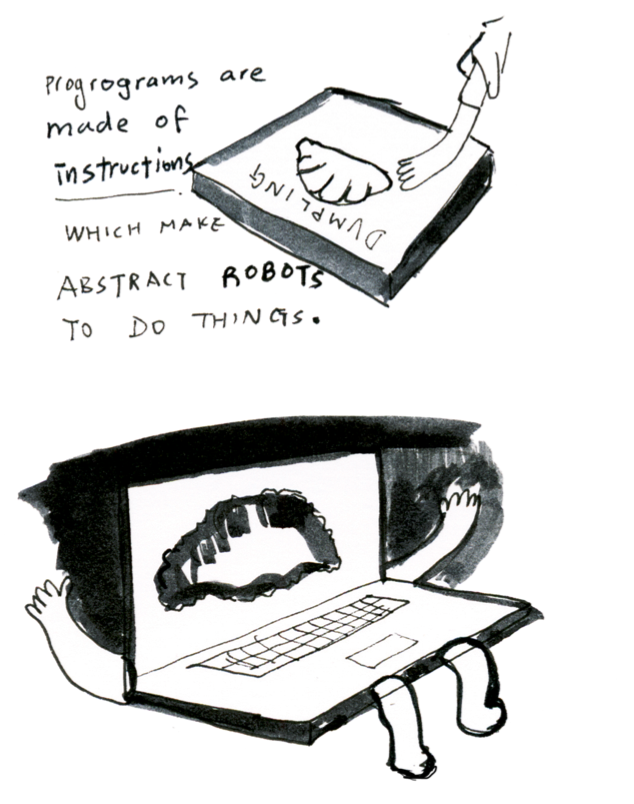 Progrograms are
made of
instructions
WHICH MAKE
ABSTRACT ROBOTS
TO DO THINGS.
DUMPLING